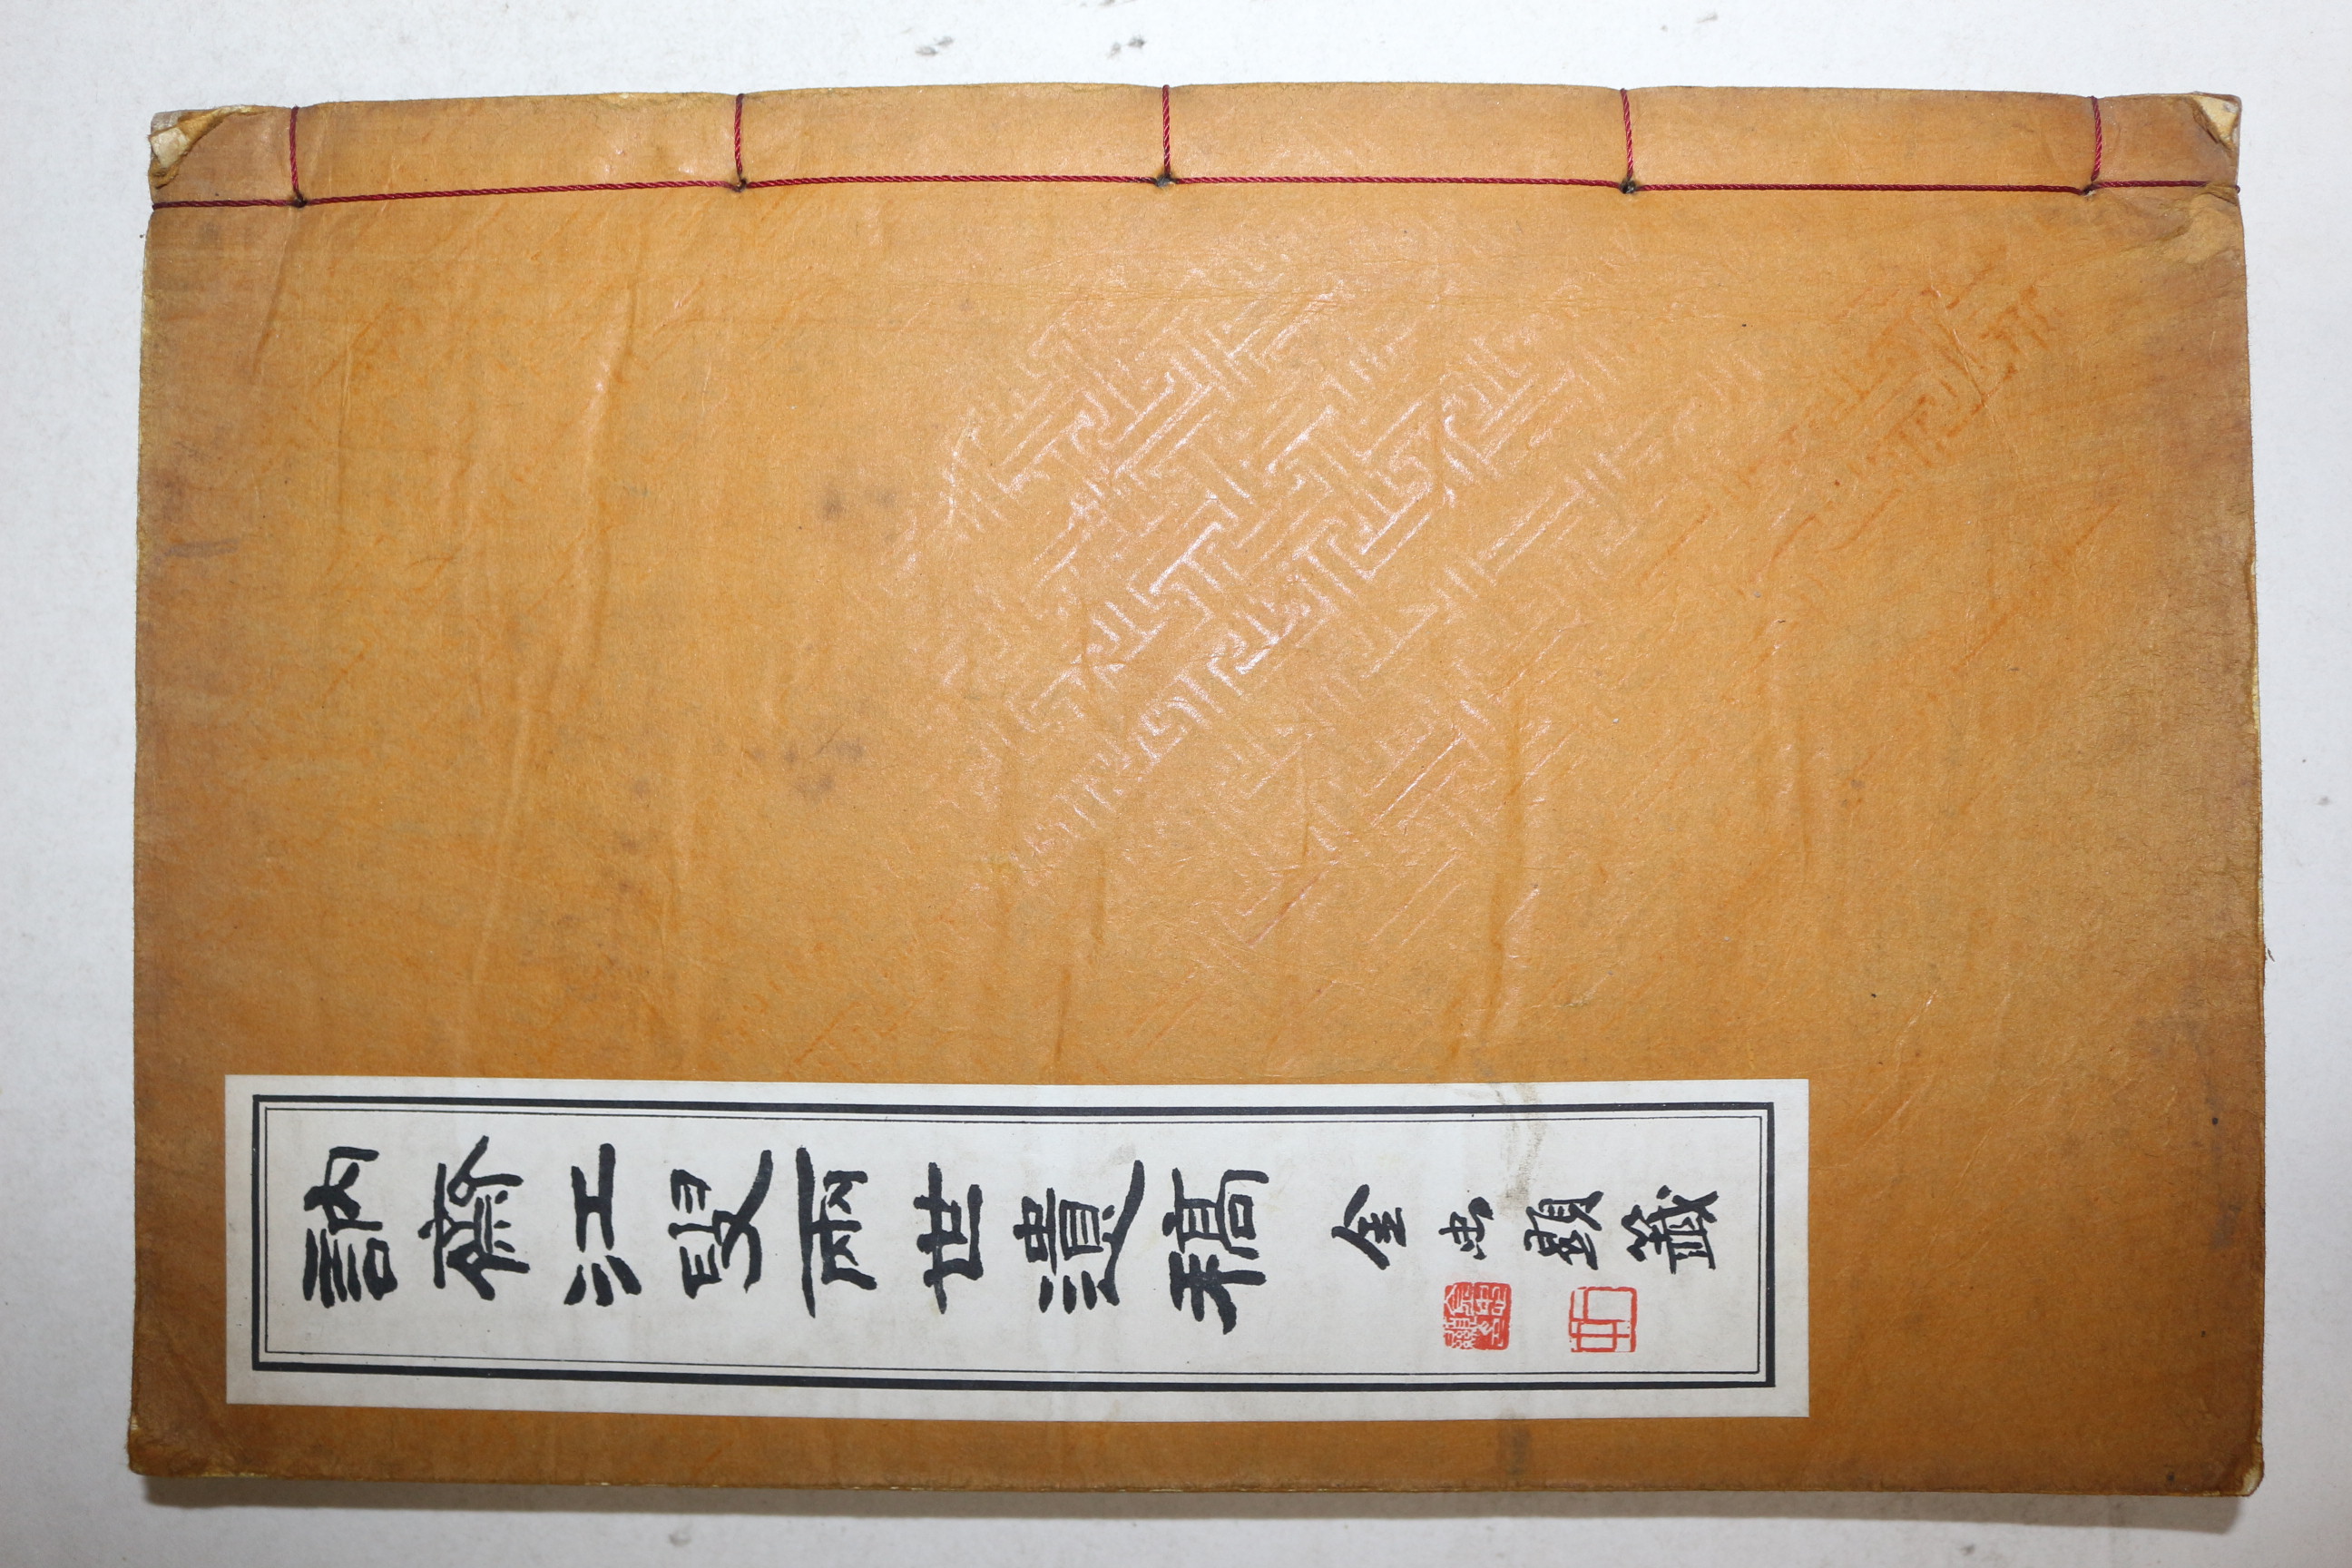 訥齋江叟兩世遺稿 金忠顯籤